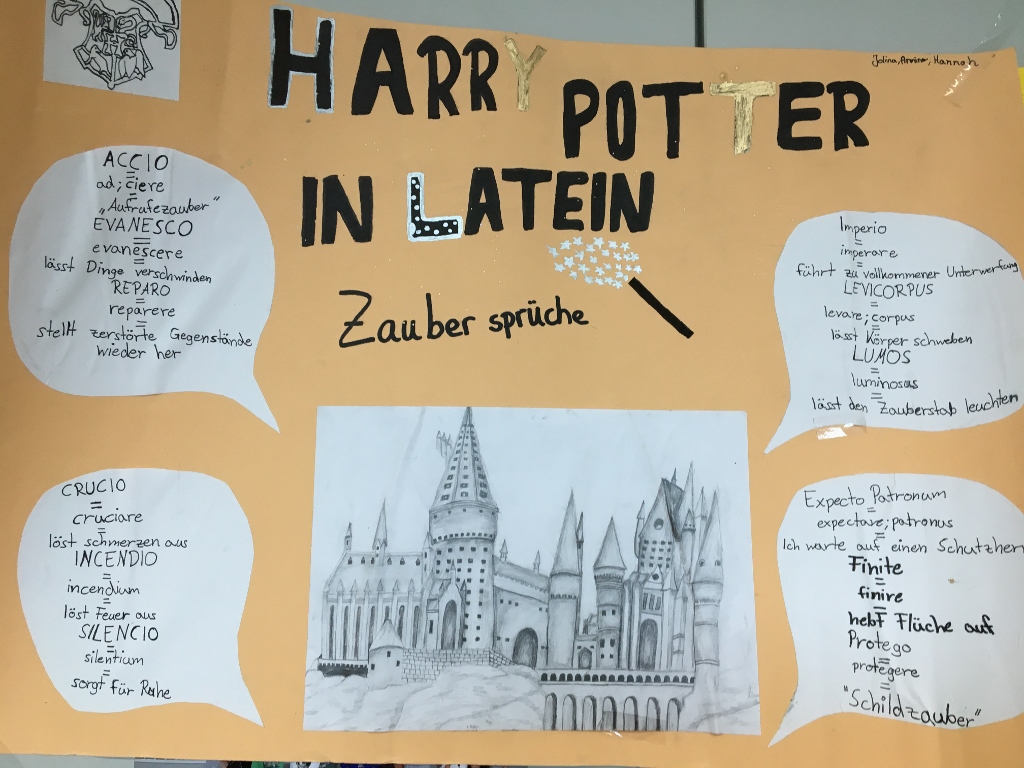 HARRY POTTER
IN LATEIN
Jolina, , Hannah
Zaubersprüche
ACCIO
=
ad; ciere
=
„Aufrufezauber"
EVANESCO
=
evanescere
=
lässt Dinge verschwinden
REPARO
=
reparere
=
stellt zerstörte Gegenstände
wieder her
Imperio
=
imperare
=
führt zu vollkommener Unterwerfung
LEVICORPUS
=
levare; corpus
=
lässt Körper schweben
LUMOS
=
luminosus
=
lässt den Zauberstab leuchten
CRUCIO
=
cruciare
=
löst schmerzen aus
INCENDIO
=
incendium
=
löst Feuer aus
SILENCIO
=
silentium
=
sorgt für Ruhe
Expecto Patronum
=
expectare; patronus
=
Ich warte auf einen Schutzherr
Finite
=
finire
=
hebt Flüche auf
Protego
=
protegere
=
"Schildzauber"